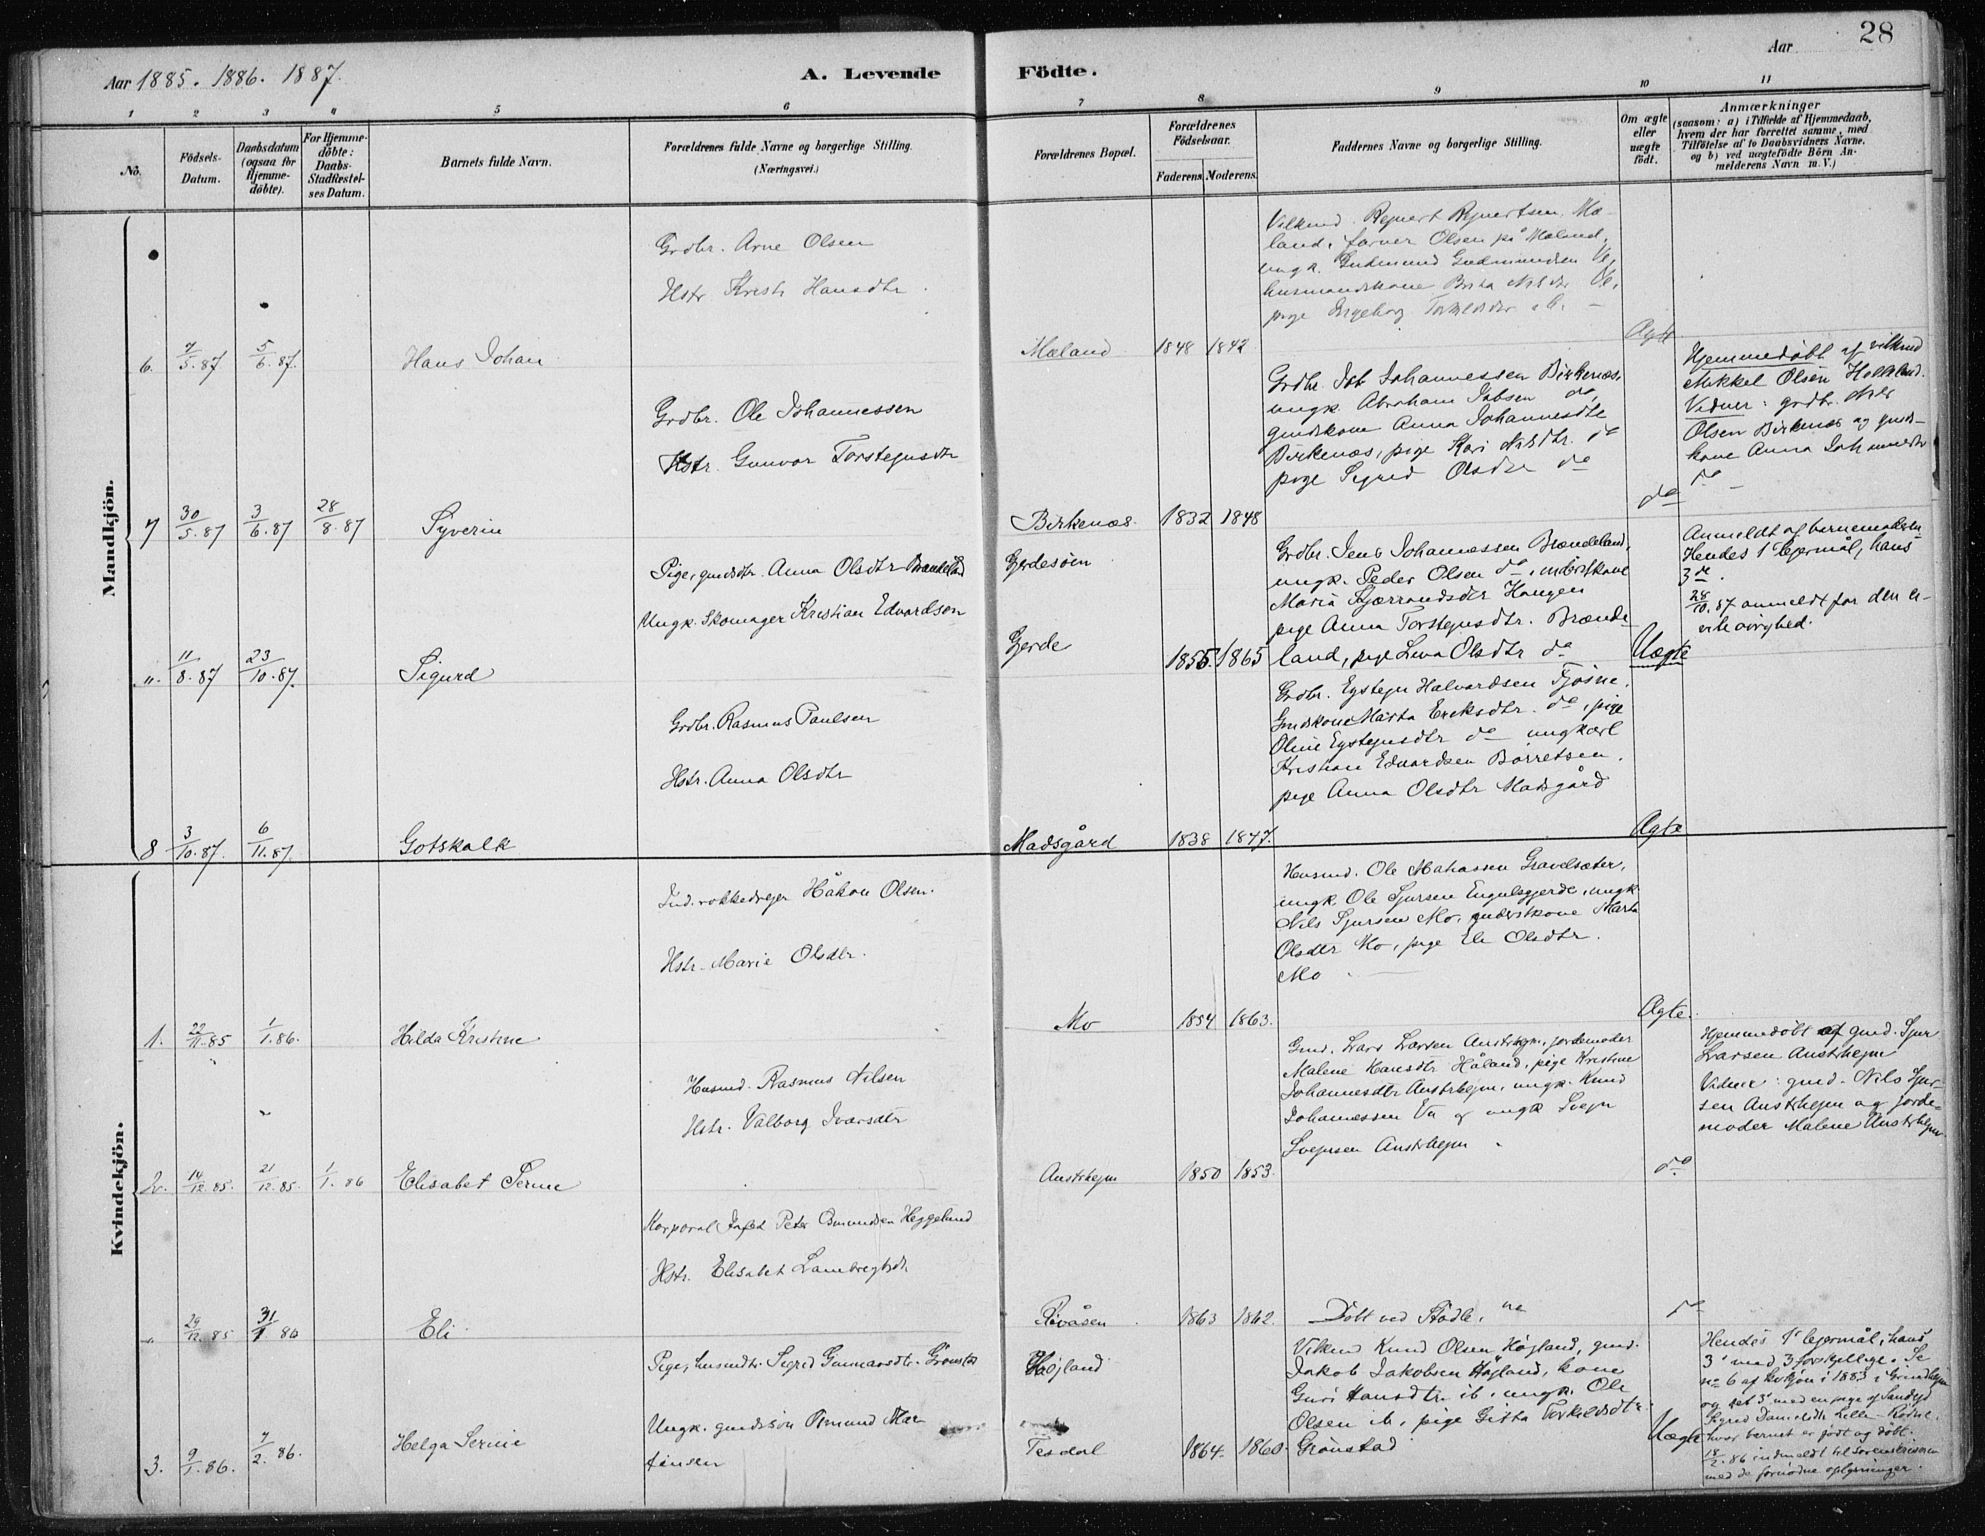 28
Aar 1885. 1886. 1887.
A. Levende Födte.
Aar
1 2 3 4 5 6 7 8 9 10 11
No.
Födsels-Datum.
Daabsdatum (ogsaa for Hjemme-döbte).
For Hjemme-döbte: Daabs-Stadfæstel-ses Datum.
Barnets fulde Navn.
Forældrenes fulde Navne og borgerlige Stilling.
(Næringsvei.)
Forældrenes Bopæl.
Forældrenes Födselsaar.
Faderens. Moderens.
Faddernes Navne og borgerlige Stilling.
Om ægte eller uægte födt.
Anmærkninger
(saasom: a) i Tilfælde af Hjemmedaab,
hvem der har forrettet samme, med
Tilföielse af to Daabsvidners Navne,
og b) ved uægtefödte Börn An-
melderens Navn m. V.)
Mandkjön.
6. 7/5.87 5/6.87. Hans Johan
Grdbr. Arne Olsen
Hstr Kristi Hansdtr.
Mæland 1848 1842
Vilkmd. Rejnert Rejnertsen Mæ-
land, farver Olsen på Mæland,
ungk. Gudmund Gudmundsen
husmandskone Brita Nilsdtr
pige Ingeborg Torkelsdtr
Ægte
7 30/5.87 3/6.87 28/8.87 Syverin
Grdbr. Ole Johannessen
Hstr. Gunvor Torstejnsdtr
Birkenæs. 1832 1848
Grdbr. Job Johannessen Birkenæs,
ungk. Abraham Jobsen do,
gmdskone Anna Johannesdtr
Birkenæs, pige Kari Nilsdtr. do
pige Sigrid Olsdtr do
do
Hjemmedøbt af vilkmd
Mikkel Olsen Helleland.
Vidner: grdbr. Nils
Olsen Birkenæs og gmds-
kone Anna Johannesdtr
do
". 11/8.87 23/10.87. Sigurd
Pige, gmdsdtr. Anna Olsdtr Brændeland
Ungk. Skomager Kristian Edvardsen
Gjerdesøen
Gjerde 1855. 1865
Grdbr. Jens Johannessen Brændeland,
ungk. Peder Olsen do, inderstkone
Maria Kjærrandsdtr Haugen
pige Anna Torstejnsdtr. Brænde-
land, pige Lena Olsdtr do
Uægte
Anmeldt af barnemoderen
Hendes 1 lejermål, hans
3de.
28/10.87 anmeldt for den ci-
vile øvrighed.
8 3/10.87. 6/11.87. Gotskalk
Grdbr. Rasmus Paulsen
Hstr. Anna Olsdtr
Madsgård 1838 1847.
Grdbr. Eystejn Halvardsen Tjøsne,
Gmdskone Marta Eriksdtr. do, pige
Oline Eystejnsdtr do ungkarl
Kristian Edvardsen Børretsen,
pige Anna Olsdtr Madsgård
Ægte
Kvindekjön.
1. 22/11.85 1/1.86. Hilda Kristine
Ind. rokkedrejer Håkon Olsen.
Hstr. Marie Olsdtr.
Mo 1854 1863.
Husmd. Ole Mathiassen Gravelsæter,
ungk. Ole Sjursen Engelsgjerde, ungk
Nils Sjursen Mo, inderstkone Marta
Olsdtr Mo, pige Eli Olsdtr.
Mo
Ægte.
2. 14/12.85. 21/12.85. 1/1.86 Elisabet Serine
Husmd. Rasmus Nilsen
Hstr. Valborg Ivarsdtr
Austrhejm 1850 1853.
Gmd. Lars Larsen Austrhejm, jordemoder
Malene Hansdtr Håland, pige Kristine
Johannesdtr Austrhejm, ungk. Knud
Johannessen og ungk Svejn
Svejnsen Austrhejm
do
Hjemmedøbt af gmd. Sjur
Larsen Austrhejm
Vidner: gmd. Nils Sjur-
sen Austrhejm og jorde-
moder Malene Austrhejm
" 29/12.85 31/1.86 Eli
Korporal Peter Osmundsen Heggeland
Hstr. Elisabet Lambregtsdtr.
Røvåsen 1863 1862.
Døbt ved Stødle.
do
3. 9/1.86. 7/2.86. Helga Serine
Pige, husmdtr. Sigrid Gunnarsdtr. Grønstad
Ungk. gmdssøn Osmund Mar
tinsen
Højland
Tesdal 1864. 1860.
Vilkmd Knud Olsen Højland, gmd.
Jakob Jakobsen Højland, kone
Guri Hansdtr ib. ungk. Ole
Olsen ib, pige Gitta Torkelsdtr
Grønstad
Uægte
Hendes 1 lejermål, hans
3' med 3 forskellige. Se
no 6 af kvkjøn i 1883 i Grindhejm
og med en pige af Sandejd
Sigrid Danielsdtr Lille-
hvor barnet er født og døbt.
18/2.86 indmeldt til Sorenskriveren
med de fornødne oplysninger.